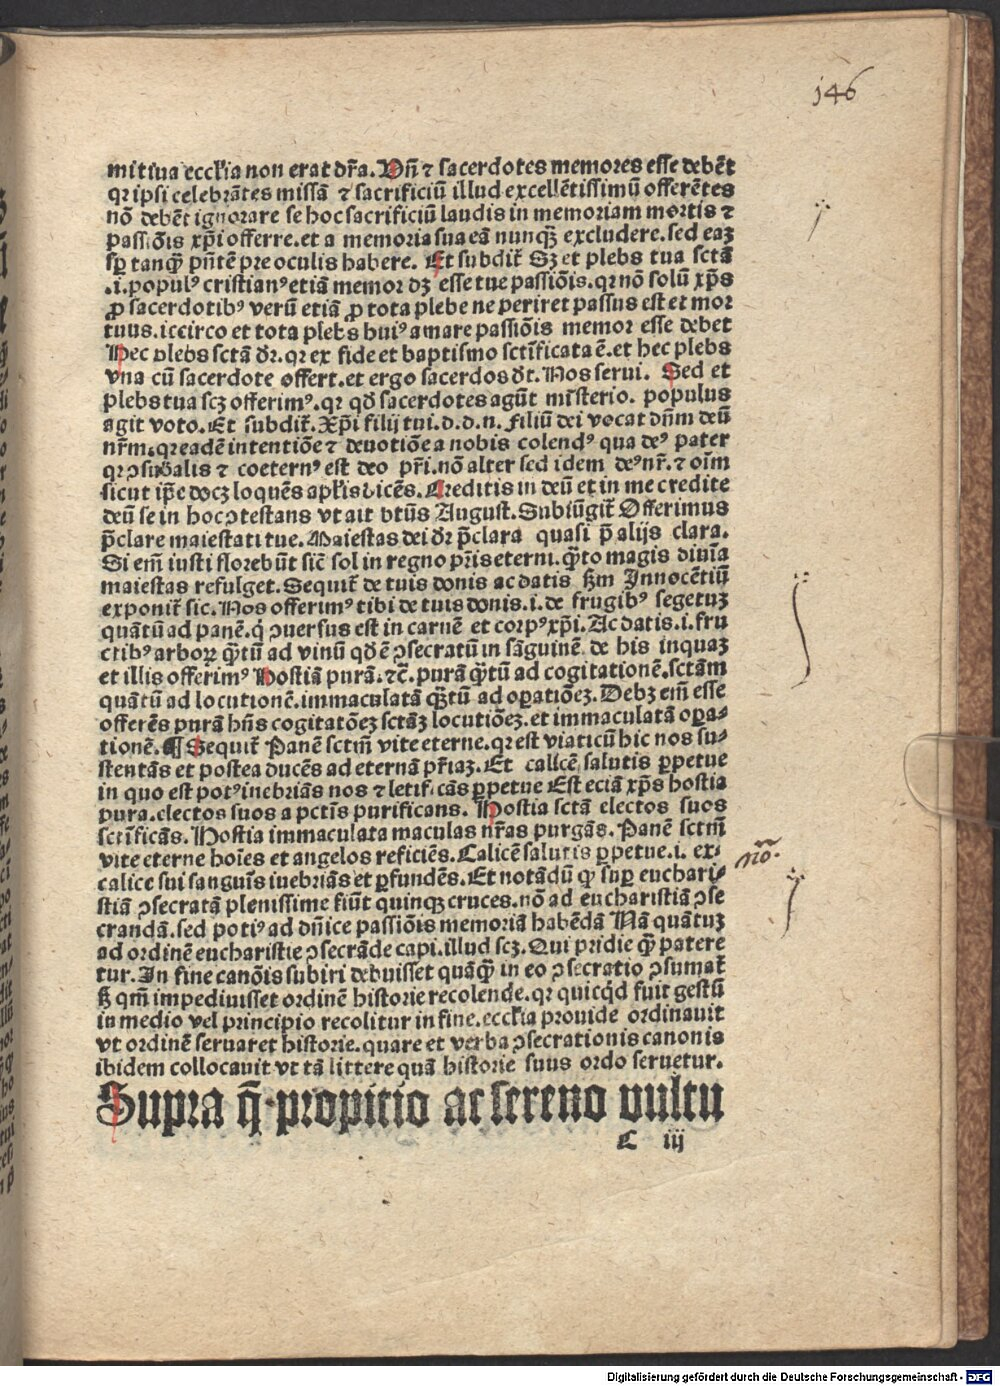 146
mitiua eccłia non erat dr̄a. Vn̄ ⁊ sacerdotes memores esse debēt
qꝛ ipsi celebrātes missā ⁊ sacrificiū illud excellētissimū offerētes
nō debēt ignorare se hoc sacrificiū laudis in memoriam mortis ⁊
passiōis xp̄i offerre.et a memoria sua eā nunqꝫ̄ excludere.sed eaꝫ
sp̄ tanqꝫ̄ pn̄tē pre oculis habere. Et subdit̄ Sꝫ et plebs tua sctā
.i.populꝰ cristianꝰ etiā memor dꝫ esse tue passiōis.qꝛ nō solū xp̄s
ꝓ sacerdotibꝰ verū etiā ꝓ tota plebe ne periret passus est et mor
tuus.iccirco et tota plebs huiꝰ amare passiōis memor esse debet
Hec plebs sctā dr̄.qꝛ ex fide et baptismo sctīficata ē.et hec plebs
vna cū sacerdote offert.et ergo sacerdos dt̄. Nos serui. Sed et
plebs tua scꝫ offerimꝰ.qꝛ qd̄ sacerdotes agūt misterio. populus
agit voto. Et subdit̄. Xp̄i filij tui.d.d.n. filiū dei vocat dn̄m deū
nr̄m.qꝛ eadē intentiōe ⁊ deuotiōe a nobis colendꝰ qua deꝰ pater
qꝛ ꝯsub̄alis ⁊ coeternꝰ est deo pr̄i.nō alter sed idem deꝰ nr̄.⁊ oīm
sicut ip̄e docꝫ loquēs apłis dicēs. Creditis in deū et in me credite
deū se in hoc ꝯtestans vt ait btūs August. Subiūgit̄ Offerimus
p̄clare maiestati tue. Maiestas dei dr̄ p̄clara quasi p̄ alijs clara.
Si em̄ iusti florebūt sic̄ sol in regno pr̄is eterni. qꝫ̄to magis diuīa
maiestas refulget. Sequit̄ de tuis donis ac datis ẜm Innocētiū
exponit̄ sic. Nos offerimꝰ tibi de tuis donis.i.de frugibꝰ segetuꝫ
quātū ad panē.q̇ ꝯuersus est in carnē et corpꝰ xp̄i. Ac datis.i.fru
ctibꝰ arboꝝ qꝫ̄tū ad vinū qd̄ ē ꝯsecratū in sāguinē. de his inquaꝫ
et illis offerimꝰ Hostiā purā.⁊c̄. purā qꝫ̄tū ad cogitationē.sctam
quātū ad locutionē.immaculatā qꝫ̄tū ad oꝑatiōeꝫ. Debꝫ em̄ esse
offerēs purā hn̄s cogitatōeꝫ sctāꝫ locutiōeꝫ.et immaculatā oꝑa⸗
tionē. ¶ Sequit̄ Panē sctm̄ vite eterne.qꝛ est viaticū hic nos su⸗
stentās et postea ducēs ad eternā pr̄iaꝫ. Et calicē salutis ꝑpetue
in quo est potꝰ inebriās nos ⁊ letificās ꝑpetue Est eciā xp̄s hostia
pura.electos suos a pctīs purificans. Hostia sctā electos suos
sctīficās. Hostia immaculata maculas nr̄as purgās. Panē sctm̄
vite eterne hoīes et angelos reficiēs. Calicē salutis ꝑpetue.i. ex⸗
calice sui sanguīs inebriās et ꝑfundēs. Et notādū qꝙ suꝑ euchari⸗
nō.
stiā ꝯsecratā plenissime fiūt quinqꝫ cruces.nō ad eucharistiā ꝯse
crandā.sed potiꝰ ad dn̄ice passiōis memoriā habēdā Nā quātuꝫ
ad ordinē eucharistie ꝯsecrāde capi.illud scꝫ. Qui pridie qꝫ̄ patere
tur. In fine canōis subiri debuisset quāqꝫ̄ in eo ꝯsecratio ꝯsumat̄
ẜꝫ qm̄ impediuisset ordinē historie recolende.qꝛ quicqd̄ fuit gestū
in medio vel principio recolitur in fine.eccłia prouide ordinauit
vt ordinē seruaret historie.quare et verba ꝯsecrationis canonis
ibidem collocauit vt tā littere quā historie suus ordo seruetur.
Supra q̄ propitio ac sereno vultu
C iij
Digitalisierung gefördert durch die Deutsche Forschungsgemeinschaft - DFG